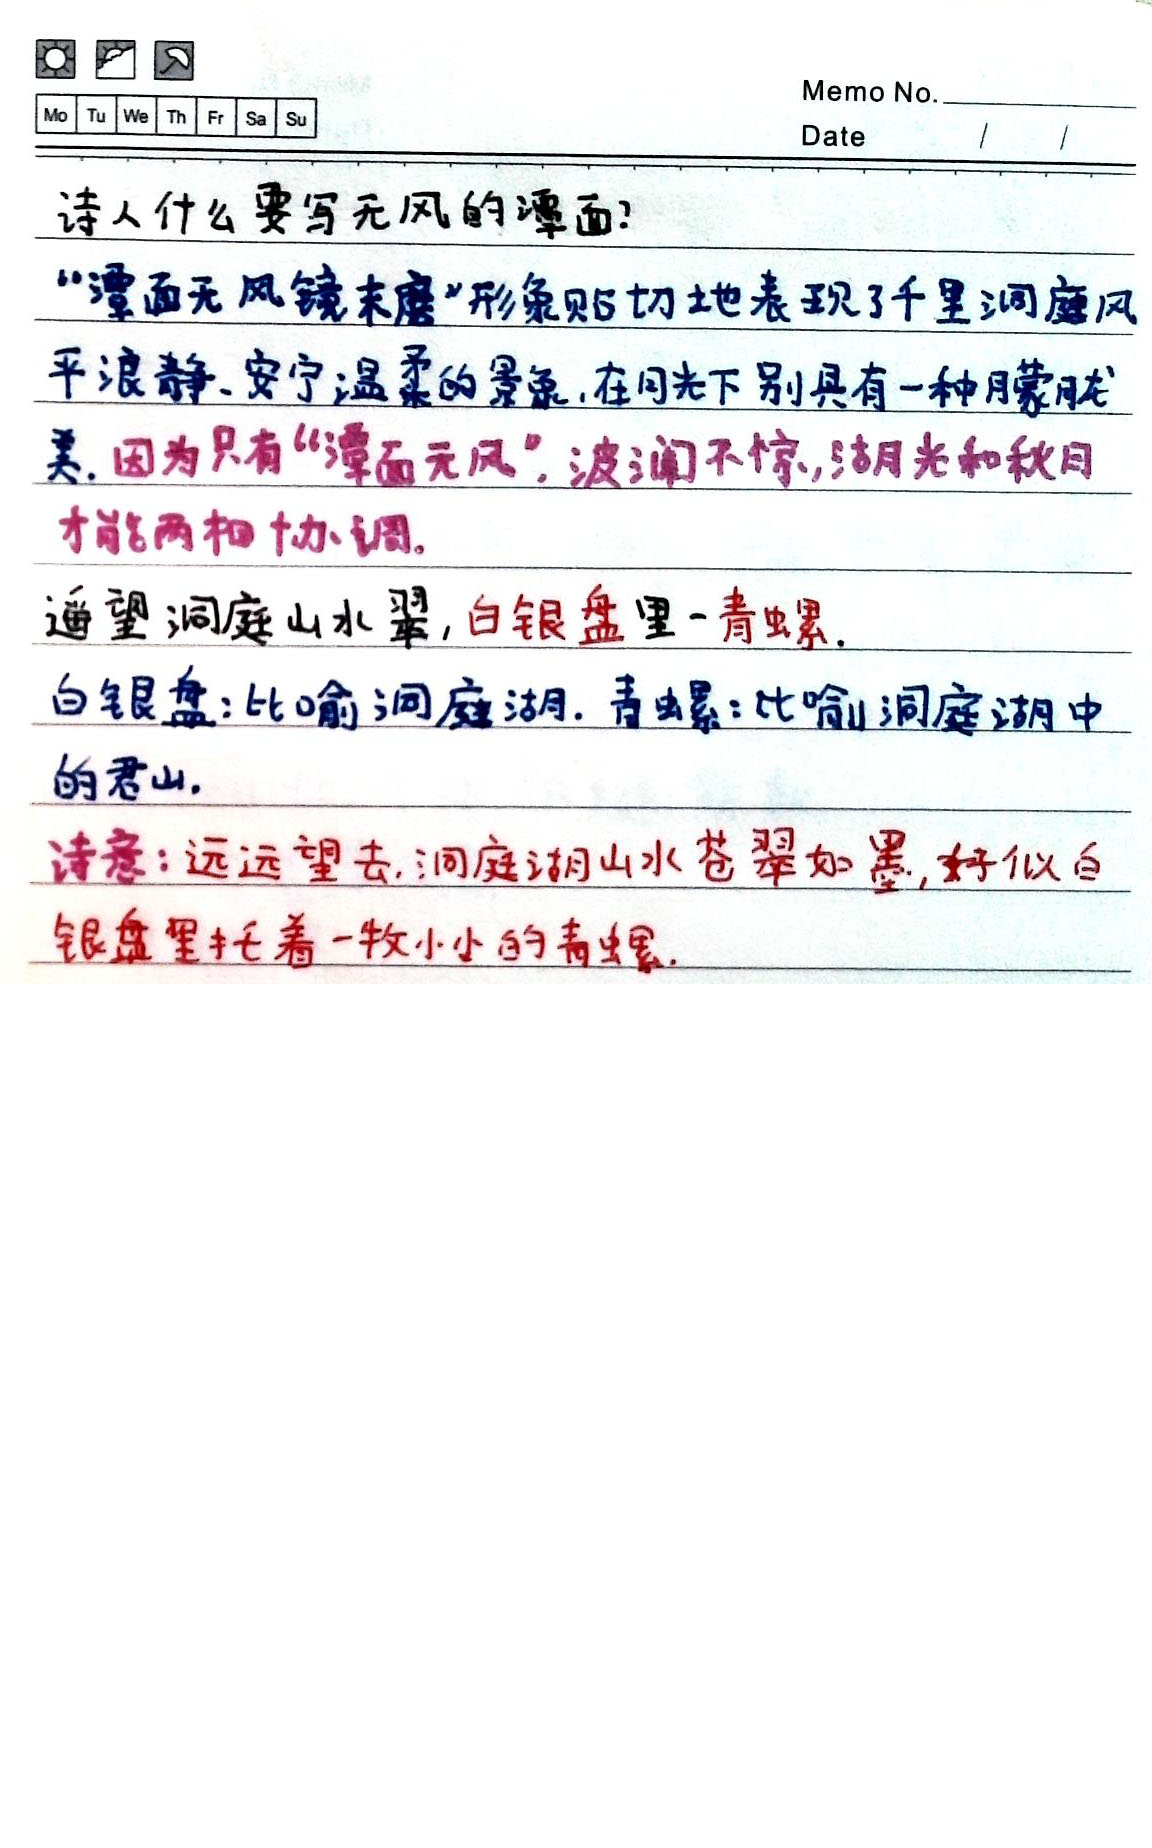 Mo Tu We Th Fr Sa Su
Memo No.
Date / /
诗人什么要写无风的潭面?
“潭面无风镜末磨”形象贴切地表现了千里洞庭风
平浪静、安宁温柔的景象,在月光下别具有一种朦胧
美.因为只有“潭面无风”,波澜不惊,湖光和秋月
才能两相协调.
遥望洞庭山水翠,白银盘里一青螺.
白银盘:比喻洞庭湖.青螺:比喻洞庭湖中
的君山.
诗意:远远望去,洞庭湖山水苍翠如墨,好似白
银盘里托着一牧小小的青螺.